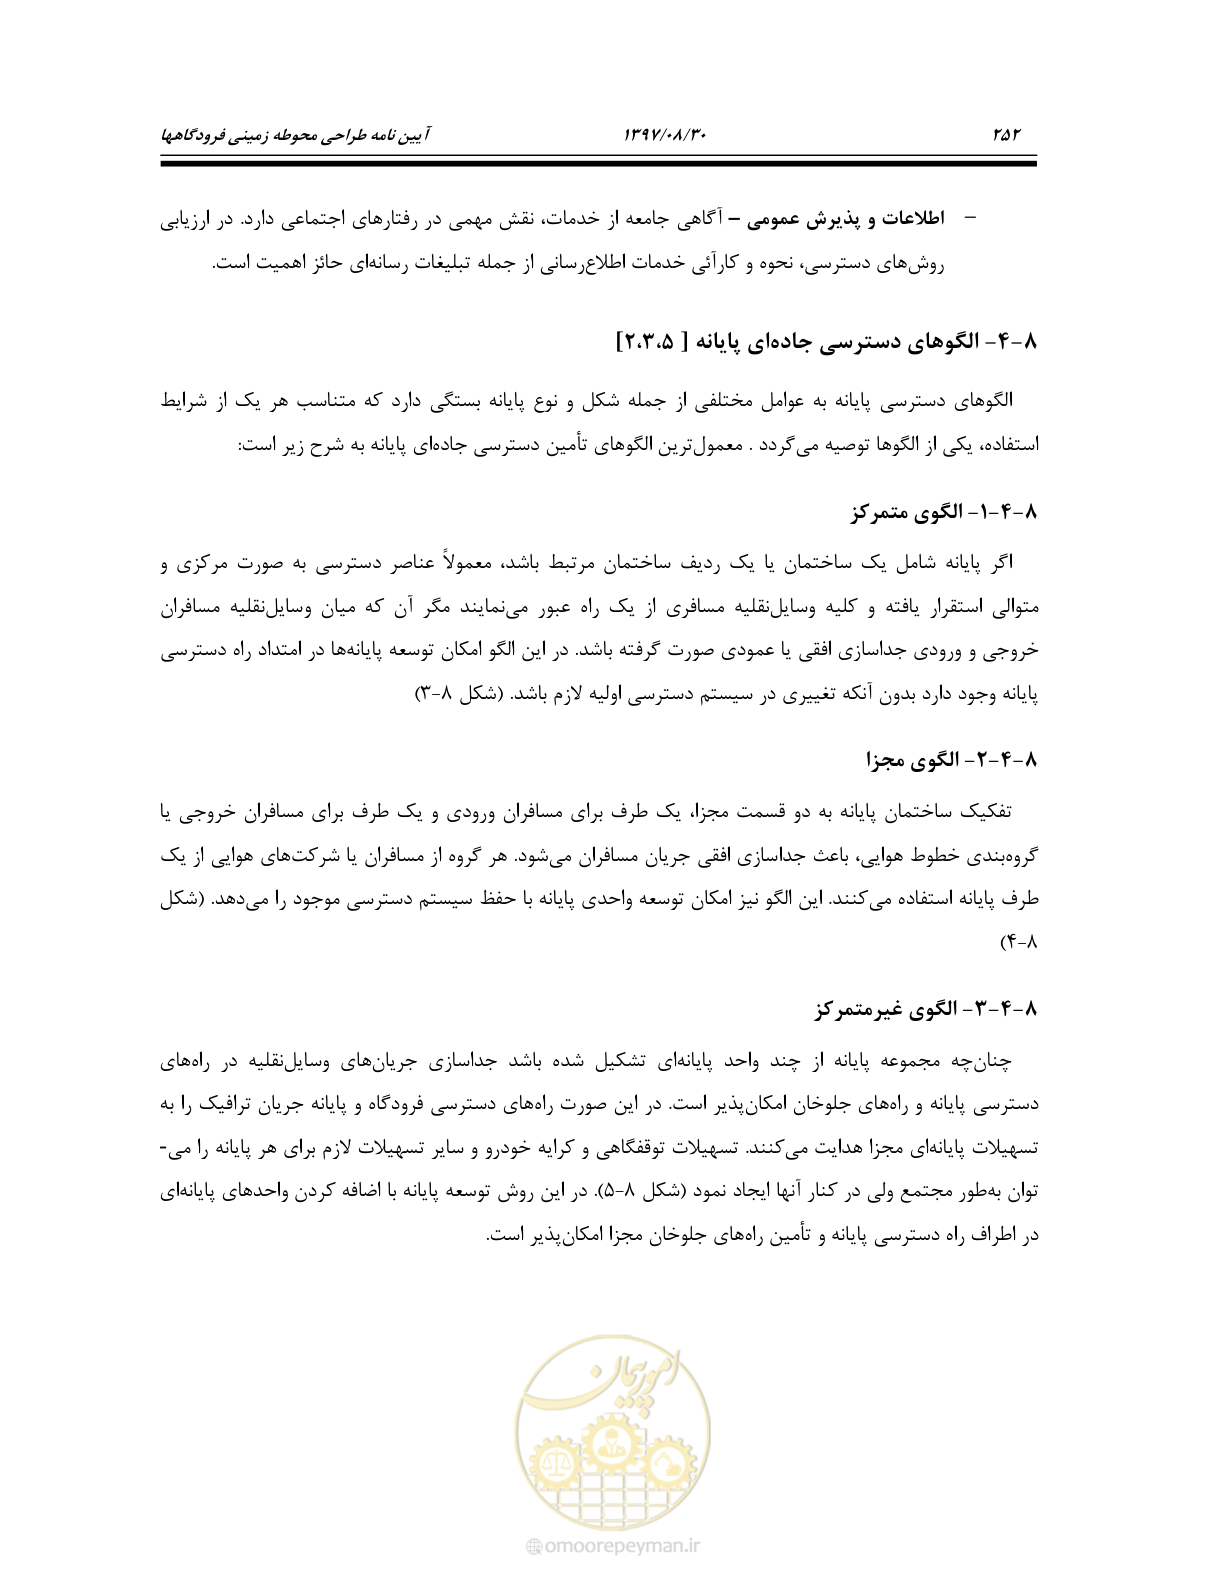 ۲۵۲ ۱۳۹۷/۰۸/۳۰ آیین نامه طراحی محوطه زمینی فرودگاهها
– اطلاعات و پذیرش عمومی – آگاهی جامعه از خدمات، نقش مهمی در رفتارهای اجتماعی دارد. در ارزیابی
روش‌های دسترسی، نحوه و کارآئی خدمات اطلاع‌رسانی از جمله تبلیغات رسانه‌ای حائز اهمیت است.
۸-۴- الگوهای دسترسی جاده‌ای پایانه [ ۲،۳،۵]
الگوهای دسترسی پایانه به عوامل مختلفی از جمله شکل و نوع پایانه بستگی دارد که متناسب هر یک از شرایط
استفاده، یکی از الگوها توصیه می‌گردد . معمول‌ترین الگوهای تأمین دسترسی جاده‌ای پایانه به شرح زیر است:
۸-۴-۱- الگوی متمرکز
اگر پایانه شامل یک ساختمان یا یک ردیف ساختمان مرتبط باشد، معمولاً عناصر دسترسی به صورت مرکزی و
متوالی استقرار یافته و کلیه وسایل‌نقلیه مسافری از یک راه عبور می‌نمایند مگر آن که میان وسایل‌نقلیه مسافران
خروجی و ورودی جداسازی افقی یا عمودی صورت گرفته باشد. در این الگو امکان توسعه پایانه‌ها در امتداد راه دسترسی
پایانه وجود دارد بدون آنکه تغییری در سیستم دسترسی اولیه لازم باشد. (شکل ۸-۳)
۸-۴-۲- الگوی مجزا
تفکیک ساختمان پایانه به دو قسمت مجزا، یک طرف برای مسافران ورودی و یک طرف برای مسافران خروجی یا
گروه‌بندی خطوط هوایی، باعث جداسازی افقی جریان مسافران می‌شود. هر گروه از مسافران یا شرکت‌های هوایی از یک
طرف پایانه استفاده می‌کنند. این الگو نیز امکان توسعه واحدی پایانه با حفظ سیستم دسترسی موجود را می‌دهد. (شکل
۸-۴)
۸-۴-۳- الگوی غیرمتمرکز
چنان‌چه مجموعه پایانه از چند واحد پایانه‌ای تشکیل شده باشد جداسازی جریان‌های وسایل‌نقلیه در راه‌های
دسترسی پایانه و راه‌های جلوخان امکان‌پذیر است. در این صورت راه‌های دسترسی فرودگاه و پایانه جریان ترافیک را به
تسهیلات پایانه‌ای مجزا هدایت می‌کنند. تسهیلات توقفگاهی و کرایه خودرو و سایر تسهیلات لازم برای هر پایانه را می-
توان به‌طور مجتمع ولی در کنار آنها ایجاد نمود (شکل ۸-۵). در این روش توسعه پایانه با اضافه کردن واحدهای پایانه‌ای
در اطراف راه دسترسی پایانه و تأمین راه‌های جلوخان مجزا امکان‌پذیر است.
امور پیمان
omoorepeyman.ir